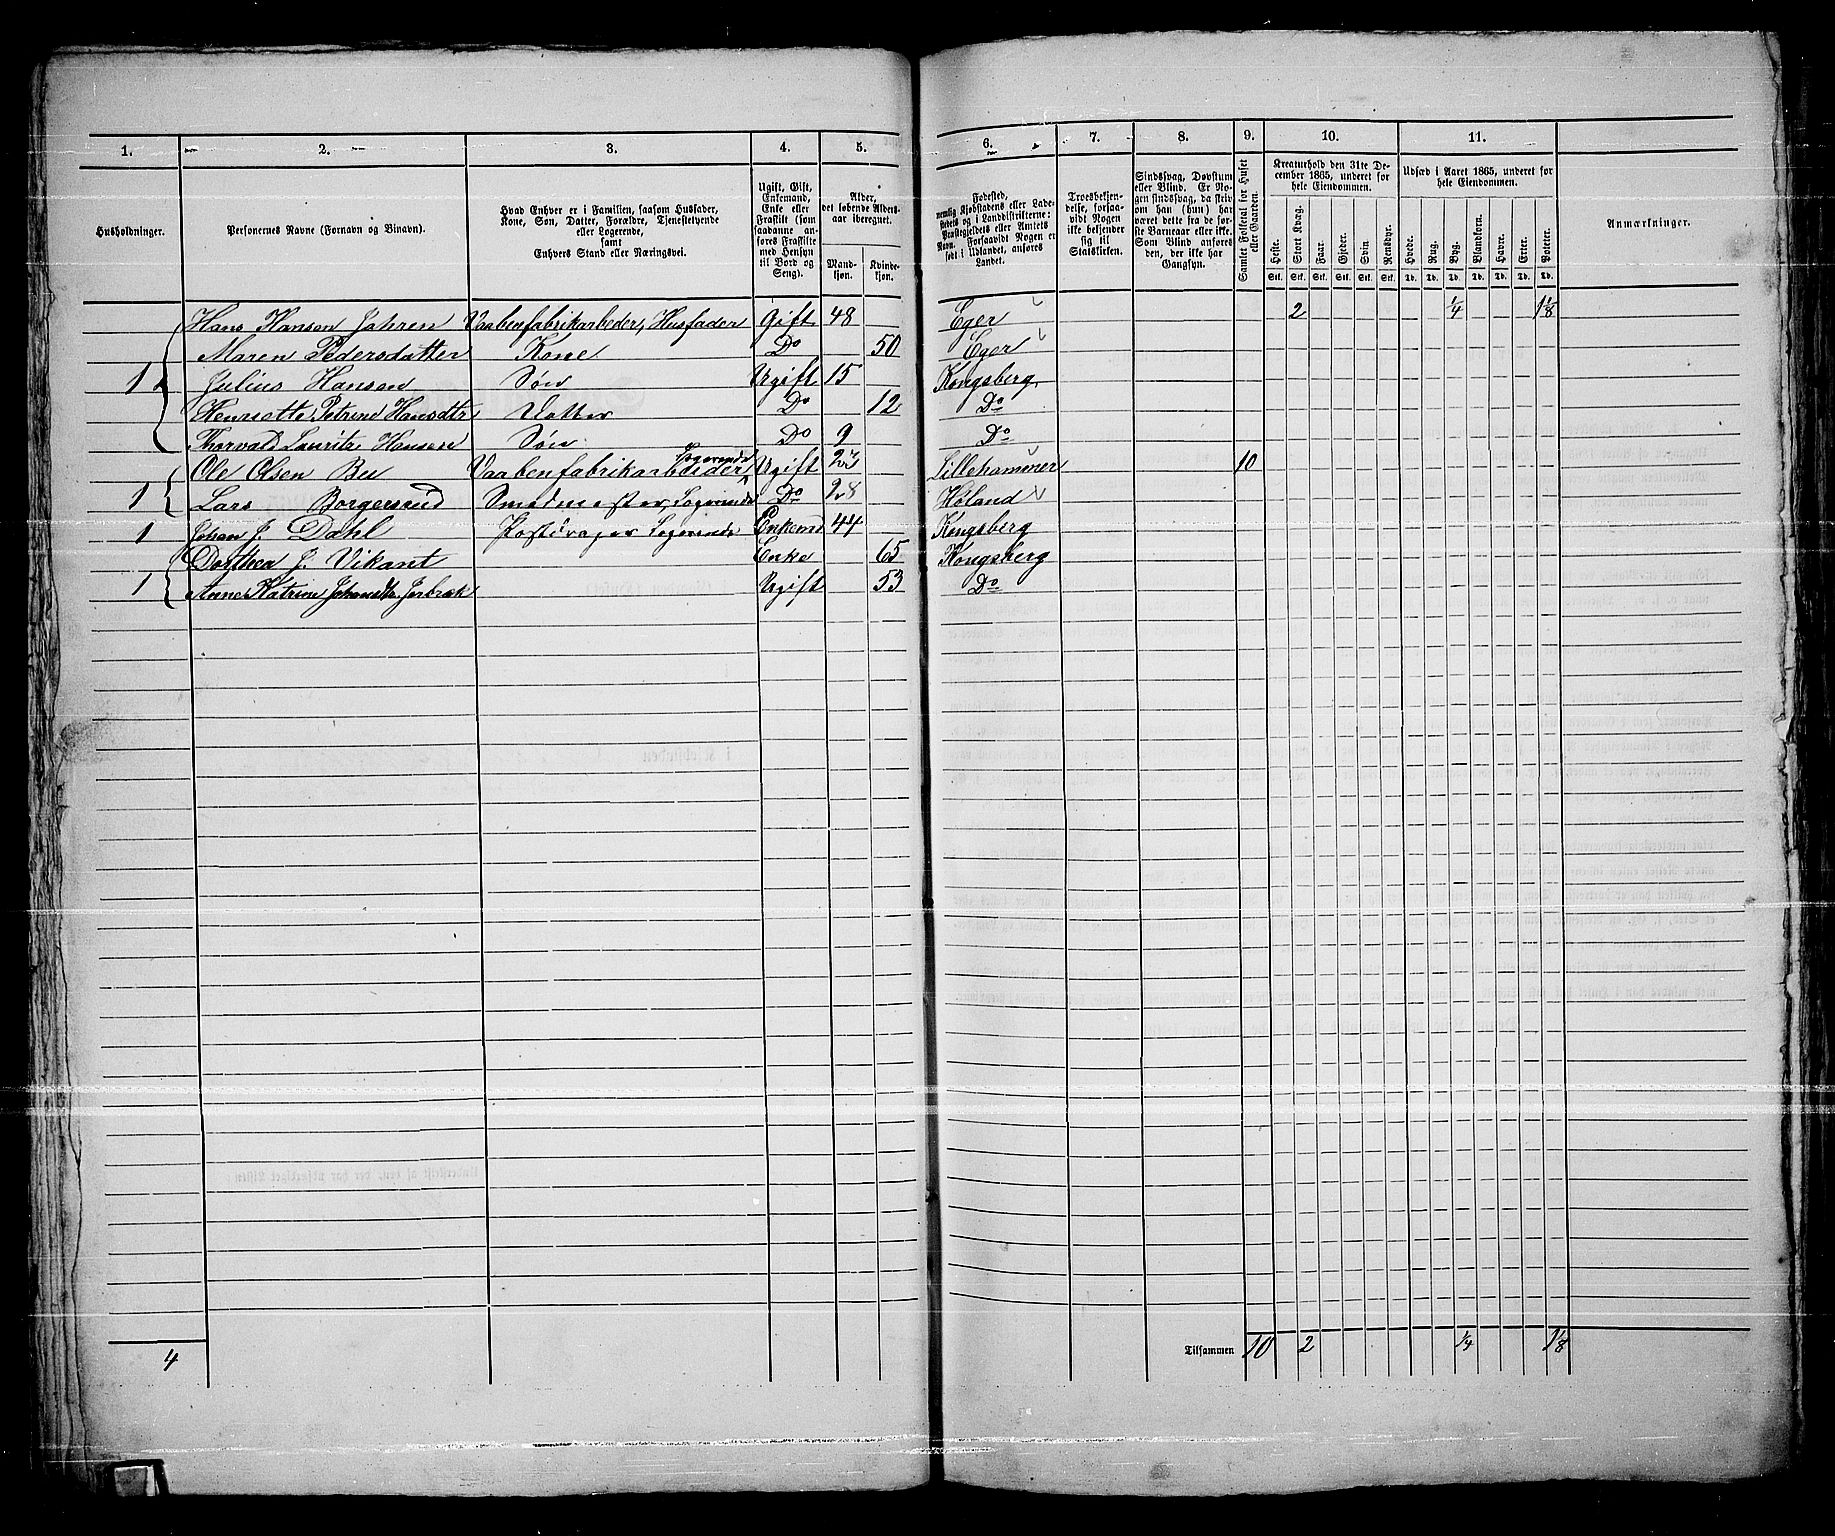 1. 2. 3. 4. 5. 6. 7. 8. 9. 10. 11.
Husholdninger.
Personernes Navne (Fornavn og Binavn).
Hvad Enhver er i Familien, saasom Husfader,
Kone, Søn, Datter, Forældre, Tjenestetyende
eller Logerende,
samt
Enhvers Stand eller Næringsvei.
Ugift, Gift,
Enkemand,
Enke eller
Fraskilt (som
saadanne an-
føres Fraskilte
med Hensyn
til Bord og
Seng).
Alder,
det løbende Alders-
aar iberegnet.
Mand-
kjøn.
Kvinde-
kjøn.
Fødested,
nemlig Kjøbstadens eller Lade-
stedets og i Landdistrikterne:
Præstegjeldets eller Amtets
Navn. Forsaavidt Nogen er
født i Udlandet, anføres
Landet.
Troesbekjen-
delse, forsaa-
vidt Nogen
ikke bekjender
sig til
Statskirken.
Sindssvag, Døvstum
eller Blind. Er No-
gen sindssvag, da skriv
om han (hun) har
været dette fra de før-
ste Barneaar eller ikke.
Som Blind anføres
den, der ikke har
Gangsyn.
Samlet Folketal for Huset
eller Gaarden.
Kreaturhold den 31te De-
cember 1865, underet for
hele Eiendommen.
Heste. Stort Kvæg. Faar. Gjeder. Svin. Rensdyr.
Stk. Stk. Stk. Stk. Stk. Stk.
Udsæd i Aaret 1865, underet for
hele Eiendommen.
Hvede. Rug. Byg. Blandkorn. Havre. Erter. Poteter.
Td. Td. Td. Td. Td. Td. Td.
Anmærkninger.
Hans Hansen Jahren Vaabenfabrikarbeder, Husfader Gift 48 Eger 2 1/4 1 1/8
Maren Pedersdatter Kone Do 50 Eger
1 Julius Hansen Søn Ugift 15 Kongsberg
Henriette Petrine Hansdtr Datter Do 12 Do
Thorvald Lauritz Hansen Søn Do 9 Do
Ole Olsen Bu Vaabenfabrikarbeider Logerende Ugift 23 Lillehammer 10
1 Lars Borgersrud Smedmester, Logerende Do 28 Høland
1 Johan J. Dahl Postdrager Logerende Enkemd 44 Kongsberg
Dorthea J. Vikant Enke 65 Kongsberg
1 Anne Katrine Johansdtr Jerbræk Ugift 53 Do
4 Tilsammen 10 2 1/4 1 1/8